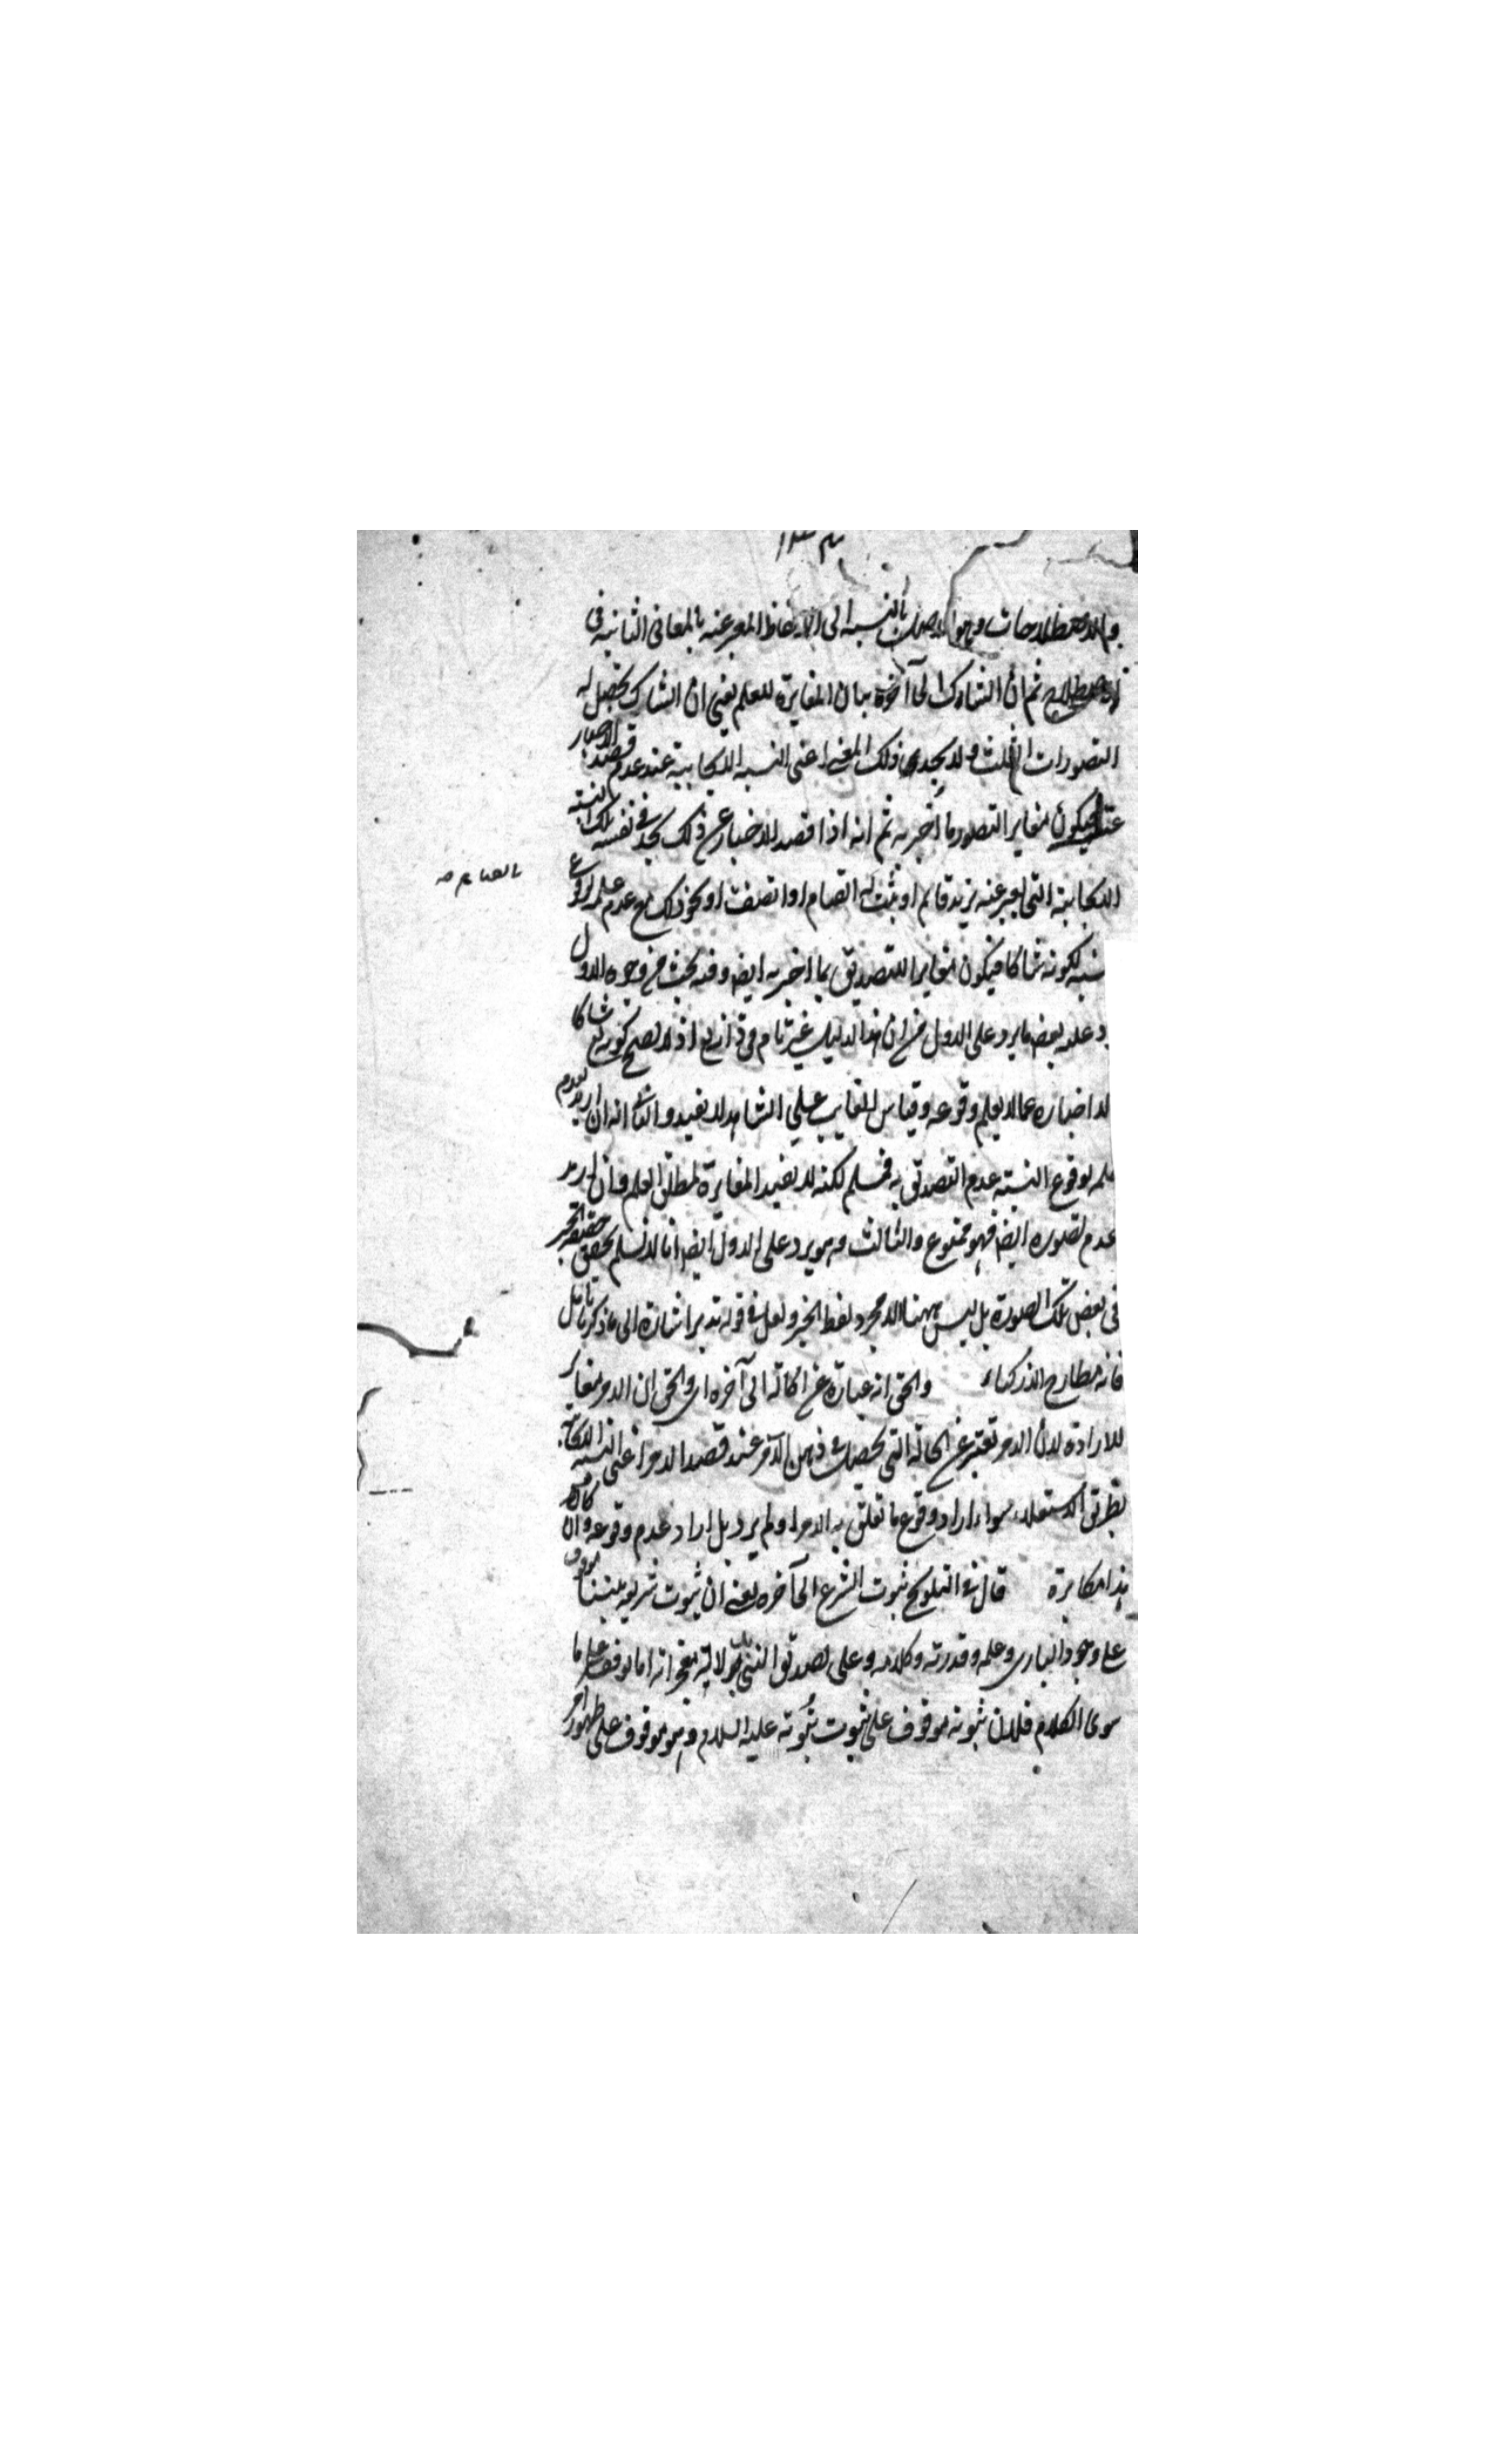 بالنسبة الى الالفاظ المعبر عنه بالمعانى الثانية فى
ثم ان الشاك الى آخره بيان المغايرة للعلم يعنى ان الشاك تحصل له
التصورات الثلث ولا يجد ذلك المعنى اعنى النسبة الايجابية عند عدم قصد الاخبار
فيكون مغاير التصور ما اخبر به ثم انه اذا قصد الاخبار عن ذلك يجد فى نفسه تلك النسبة
الايجابية التى يعبر عنه بزيد قائم او ثبت له القيام او اتصف او نحو ذلك مع عدم علمه بوقوع
لكونه شاكا فيكون مغايرا للتصديق بما اخبر به ايض وفيه بحث من وجوه الاول
عليه بعض ما يرد على الاول من ان هذا الدليل غير تام فى ذاته تع اذ لا يصح كونه تع شاكا
اخباره عما لا يعلم وقوعه وقياس الغايب على الشاهد لا يفيد والثانى انه ان اريد بعدم
بوقوع النسبة عدم التصديق به فمسلم لكنه لا يفيد المغايرة لمطلق العلم وان اريد
عدم تصوره ايض فهو ممنوع والثالث وهو يرد على الاول ايض انا لا نسلم تحقق حقيقة الخبر
فى بعض تلك الصورة بل ليس ههنا الا مجرد لفظ الخبر ولعل فى قوله تدبر اشارة الى ما ذكرنا تأمل
فانه مطارح الاذكياء والحق انه عبارة عن الحالة الى آخره اى والحق ان الامر مغاير
للارادة لان الامر تعبير عن الحالة التى تحصل فى ذهن الآمر عند قصد الامر اعنى النسبة
بطريق الاستعلاء سواء اراد وقوع ما تعلق به الامر او لم يرد بل اراد عدم وقوعه وان كان
هذا مكابرة قال فى التلويح ثبوت الشرع الى آخره يعنى ان ثبوت شريعة نبينا موقوف
على وجود البارى وعلمه وقدرته وكلامه وعلى تصديق النبى بدلالة معجزاته اما توقفه على ما
سوى الكلام فلان ثبوته موقوف على ثبوت نبوته عليه السلام وهو موقوف على ظهور